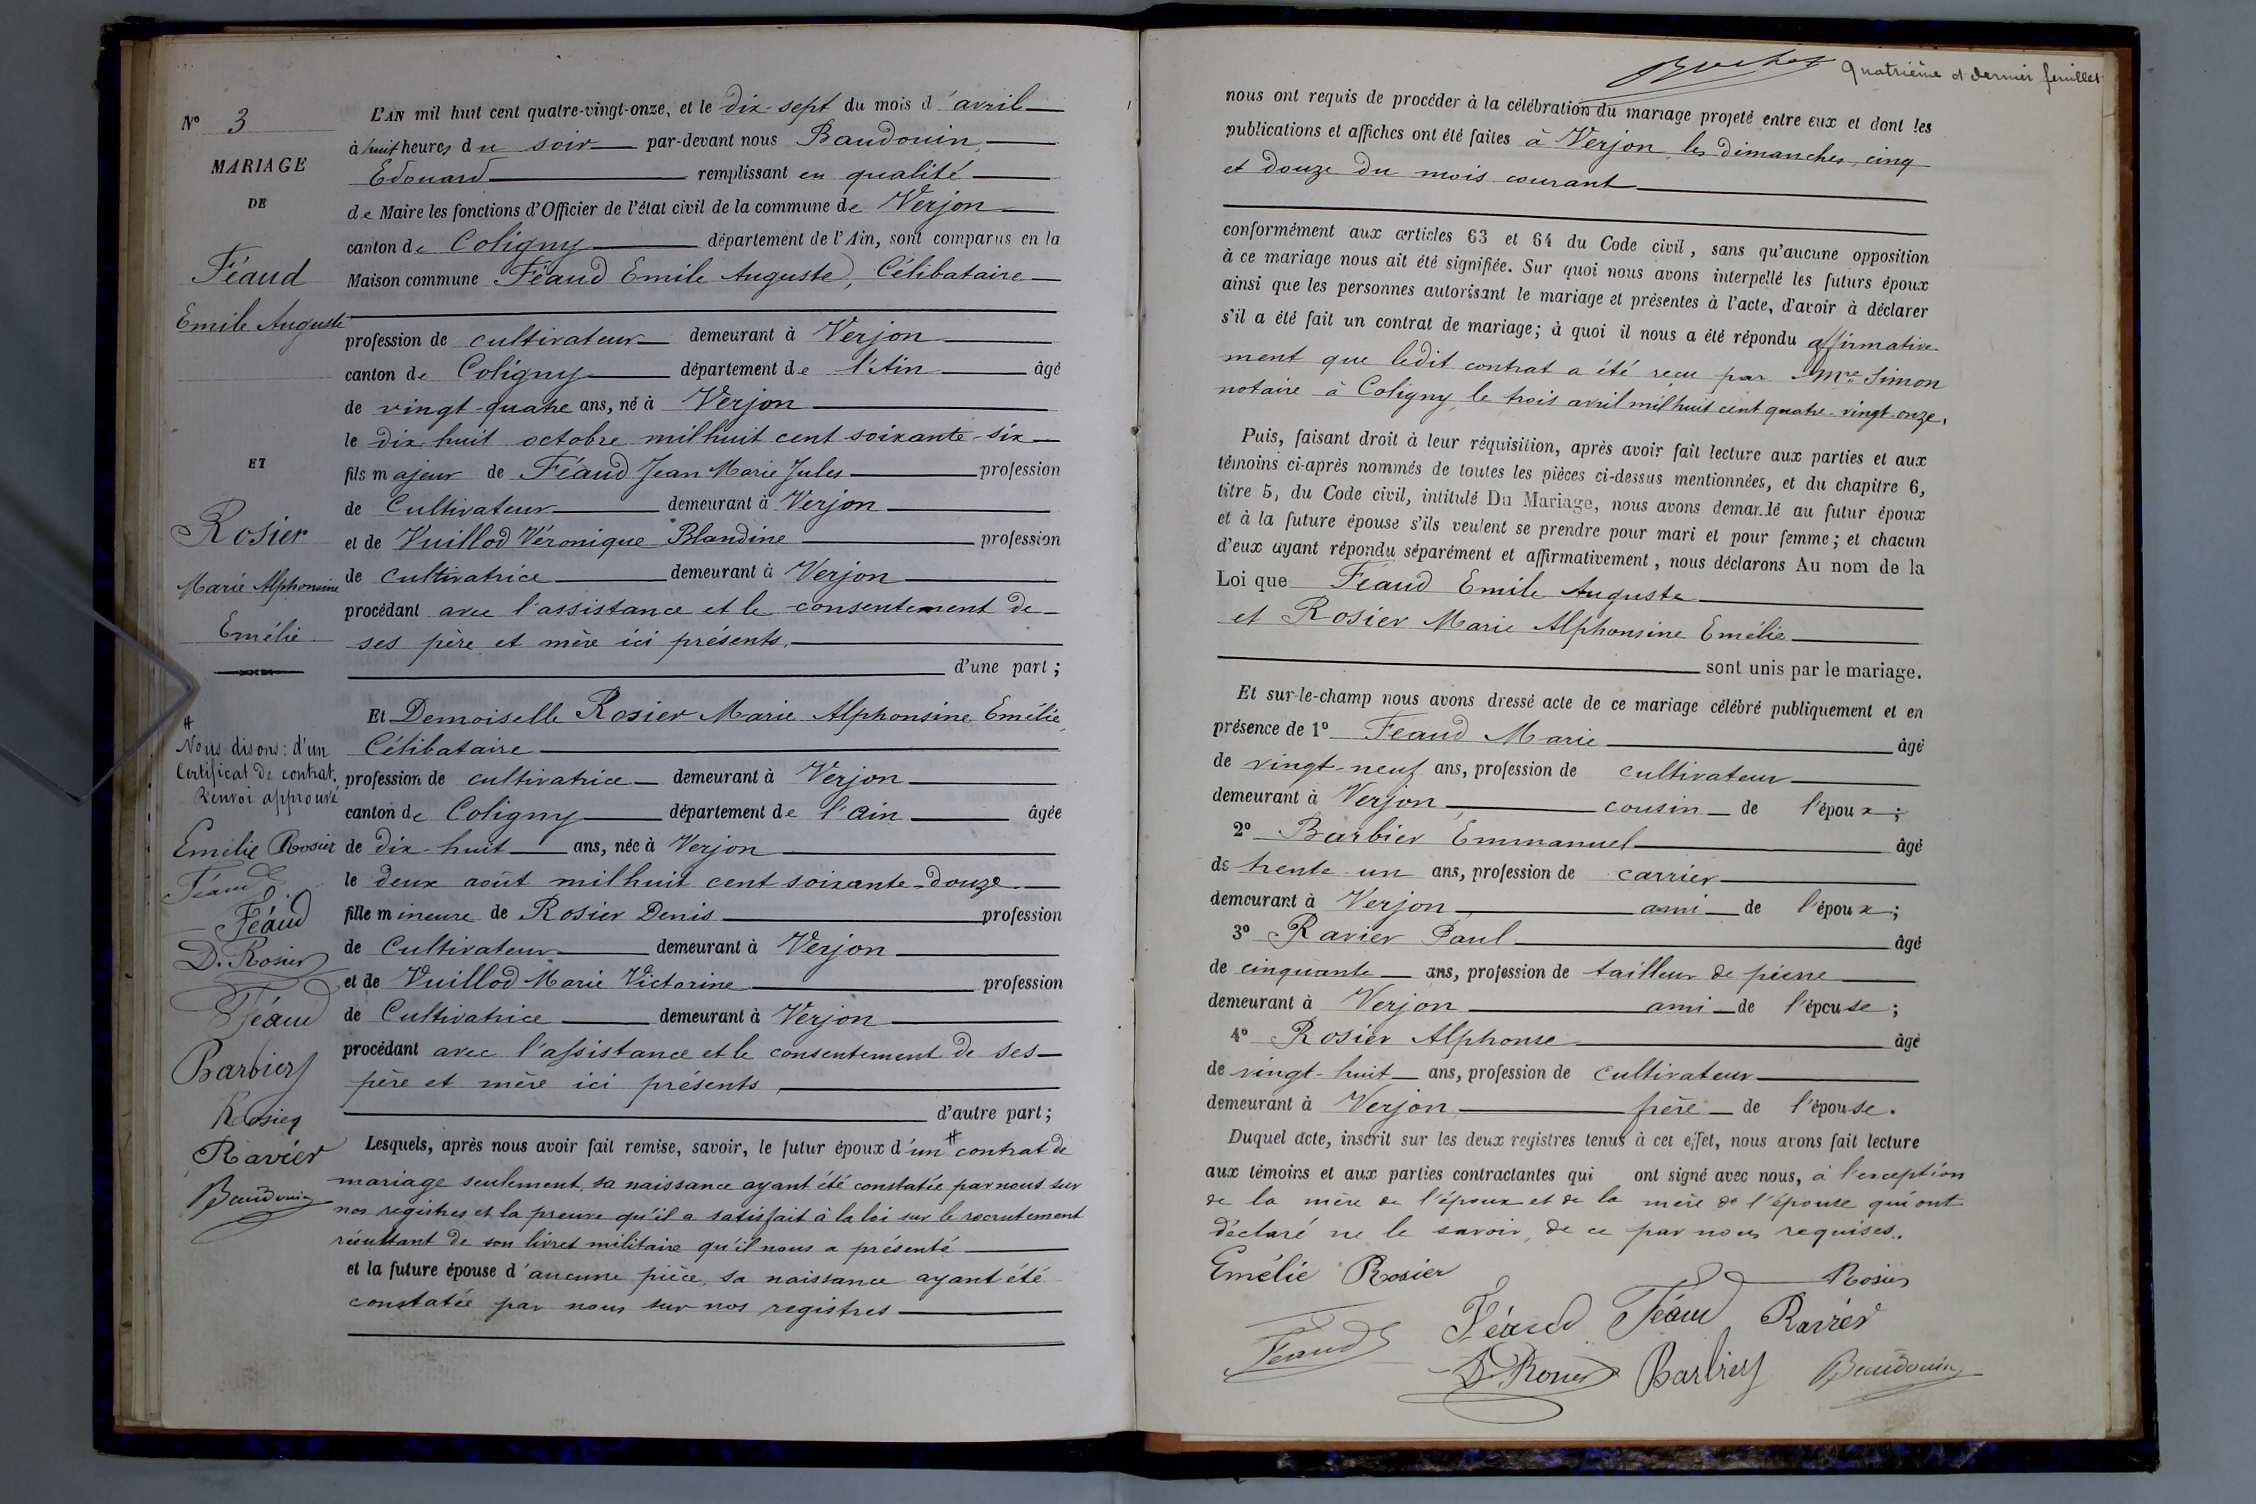 N° 3
MARIAGE
DE
Féaud
Emile Auguste
ET
Rosier
Marie Alphonsine
Emélie
#
Nous disons : d'un
Certificat de contrat.
Renvoi approuvé
Emélie Rosier
Féaud
Féaud
D. Rosier
Féaud
Barbier
Rosier
Ravier
Baudouin
L'AN mil huit cent quatre-vingt-onze, et le dix-sept du mois d'avril
à huit heures du soir par-devant nous Baudouin
Edouard remplissant en qualité
de Maire les fonctions d'Officier de l'état civil de la commune de Verjon
canton de Coligny département de l'Ain, sont comparus en la
Maison commune Féaud Emile Auguste, Célibataire
profession de cultivateur demeurant à Verjon
canton de Coligny département de l'Ain âgé
de vingt-quatre ans, né à Verjon
le dix-huit octobre mil huit cent soixante-six
fils majeur de Féaud Jean Marie Jules profession
de Cultivateur demeurant à Verjon
et de Vuillod Véronique Blandine profession
de cultivatrice demeurant à Verjon
procédant avec l'assistance et le consentement de
ses père et mère ici présents.
d'une part ;
Et Demoiselle Rosier Marie Alphonsine Emélie,
Célibataire
profession de cultivatrice demeurant à Verjon
canton de Coligny département de l'Ain âgée
de dix-huit ans, née à Verjon
le deux août mil huit cent soixante-douze
fille mineure de Rosier Denis profession
de Cultivateur demeurant à Verjon
et de Vuillod Marie Victorine profession
de Cultivatrice demeurant à Verjon
procédant avec l'assistance et le consentement de ses
père et mère ici présents
d'autre part ;
Lesquels, après nous avoir fait remise, savoir, le futur époux d'un # contrat de
mariage seulement, sa naissance ayant été constatée par nous sur
nos registres et la preuve qu'il a satisfait à la loi sur le recrutement
résultant de son livret militaire qu'il nous a présenté
et la future épouse d'aucune pièce, sa naissance ayant été
constatée par nous sur nos registres
Quatrième et dernier feuillet
nous ont requis de procéder à la célébration du mariage projeté entre eux et dont les
publications et affiches ont été faites à Verjon les dimanches cinq
et douze du mois courant
conformément aux articles 63 et 64 du Code civil, sans qu'aucune opposition
à ce mariage nous ait été signifiée. Sur quoi nous avons interpellé les futurs époux
ainsi que les personnes autorisant le mariage et présentes à l'acte, d'avoir à déclarer
s'il a été fait un contrat de mariage ; à quoi il nous a été répondu affirmative-
ment que ledit contrat a été reçu par Mre Simon
notaire à Coligny, le trois avril mil huit cent quatre-vingt-onze.
Puis, faisant droit à leur réquisition, après avoir fait lecture aux parties et aux
témoins ci-après nommés de toutes les pièces ci-dessus mentionnées, et du chapitre 6,
titre 5, du Code civil, intitulé Du Mariage, nous avons demandé au futur époux
et à la future épouse s'ils veulent se prendre pour mari et pour femme ; et chacun
d'eux ayant répondu séparément et affirmativement, nous déclarons Au nom de la
Loi que Féaud Emile Auguste
et Rosier Marie Alphonsine Emélie
sont unis par le mariage.
Et sur-le-champ nous avons dressé acte de ce mariage célébré publiquement et en
présence de 1° Féaud Marie âgé
de vingt-neuf ans, profession de cultivateur
demeurant à Verjon, cousin de l'époux ;
2° Barbier Emmanuel âgé
de trente un ans, profession de carrier
demeurant à Verjon, ami de l'époux ;
3° Ravier Paul âgé
de cinquante ans, profession de tailleur de pierre
demeurant à Verjon ami de l'épouse ;
4° Rosier Alphonse âgé
de vingt-huit ans, profession de cultivateur
demeurant à Verjon frère de l'épouse.
Duquel acte, inscrit sur les deux registres tenus à cet effet, nous avons fait lecture
aux témoins et aux parties contractantes qui ont signé avec nous, à l'exception
de la mère de l'époux et de la mère de l'épouse qui ont
déclaré ne le savoir, de ce par nous requises.
Emélie Rosier Rosier
Féaud Féaud Féaud Ravier
D. Rosier Barbier Baudouin